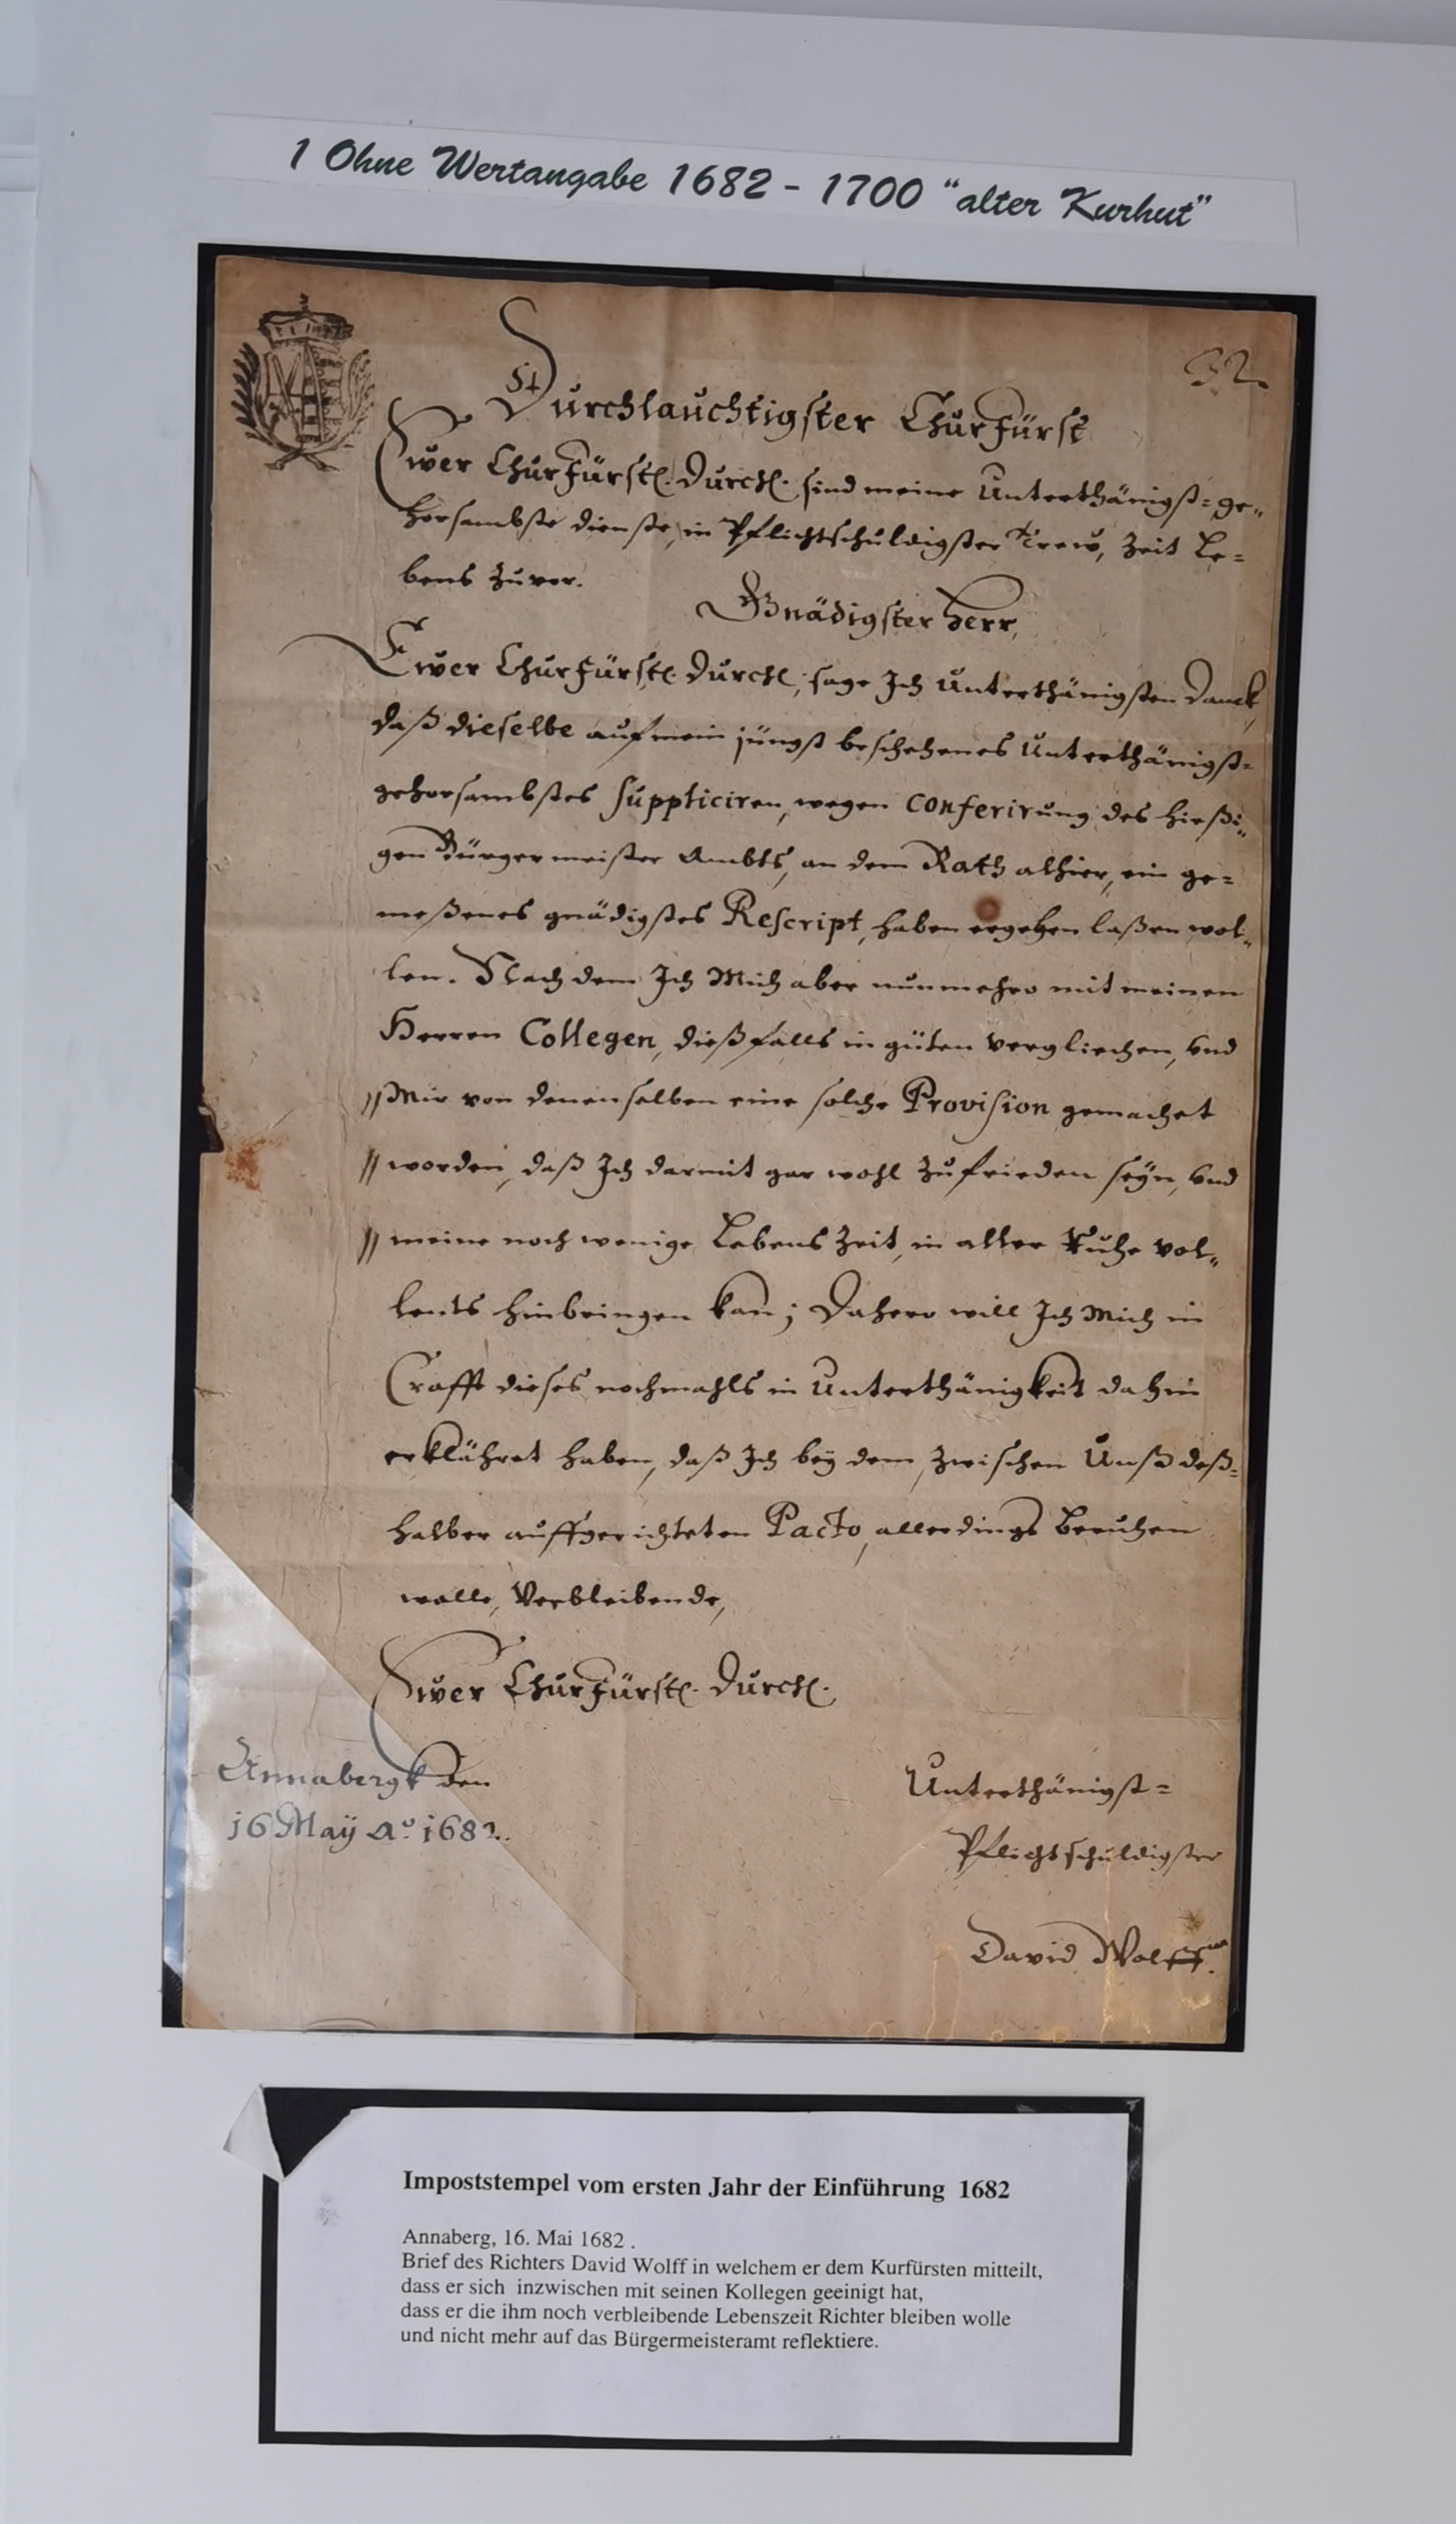 1 Ohne Wertangabe 1682 - 1700 "alter Kurhut"
32.
Durchlauchtigster ChurFürst
Ewer ChurFürstl. Durchl. sind meine Unterthänigst-ge-
horsambste dienste, in Pflichtschuldigster Trew, Zeit Le-
bens Zuvor.
Gnädigster Herr,
Ewer ChurFürstl. Durchl. sage Ich Unterthänigsten Danck,
daß dieselbe auf mein jüngst beschehenes Unterthänigst-
gehorsambstes Suppliciren, wegen Conferirung des hießi-
gen Bürgermeister Ambts, an dem Rath alhier, ein ge-
meßenes gnädigstes Rescript, haben ergehen laßen wol-
len. Nach dem Ich Mich aber nunmehro mit meinen
Herren Collegen, dießfalls in güten verglichen, und
Mir von denenselben eine solche Provision gemachet
worden, daß Ich darmit gar wohl Zufrieden seÿn, und
meine noch wenige Lebens Zeit, in aller Ruhe vol-
lents hinbringen kan; Dahero will Ich Mich in
Crafft dieses nochmahls in Unterthänigkeit dahin
erklähret haben, daß Ich beÿ dem, Zwischen Unß deß-
halber auffgerichteten Pacto, allerdings Beruhen
wolle, Verbleibende,
Ewer ChurFürstl. Durchl.
Annabergk den
16 Maÿ Ao. 1682.
Unterthänigst-
Pflichtschuldigster
David Wolff
Impoststempel vom ersten Jahr der Einführung 1682
Annaberg, 16. Mai 1682 .
Brief des Richters David Wolff in welchem er dem Kurfürsten mitteilt,
dass er sich inzwischen mit seinen Kollegen geeinigt hat,
dass er die ihm noch verbleibende Lebenszeit Richter bleiben wolle
und nicht mehr auf das Bürgermeisteramt reflektiere.